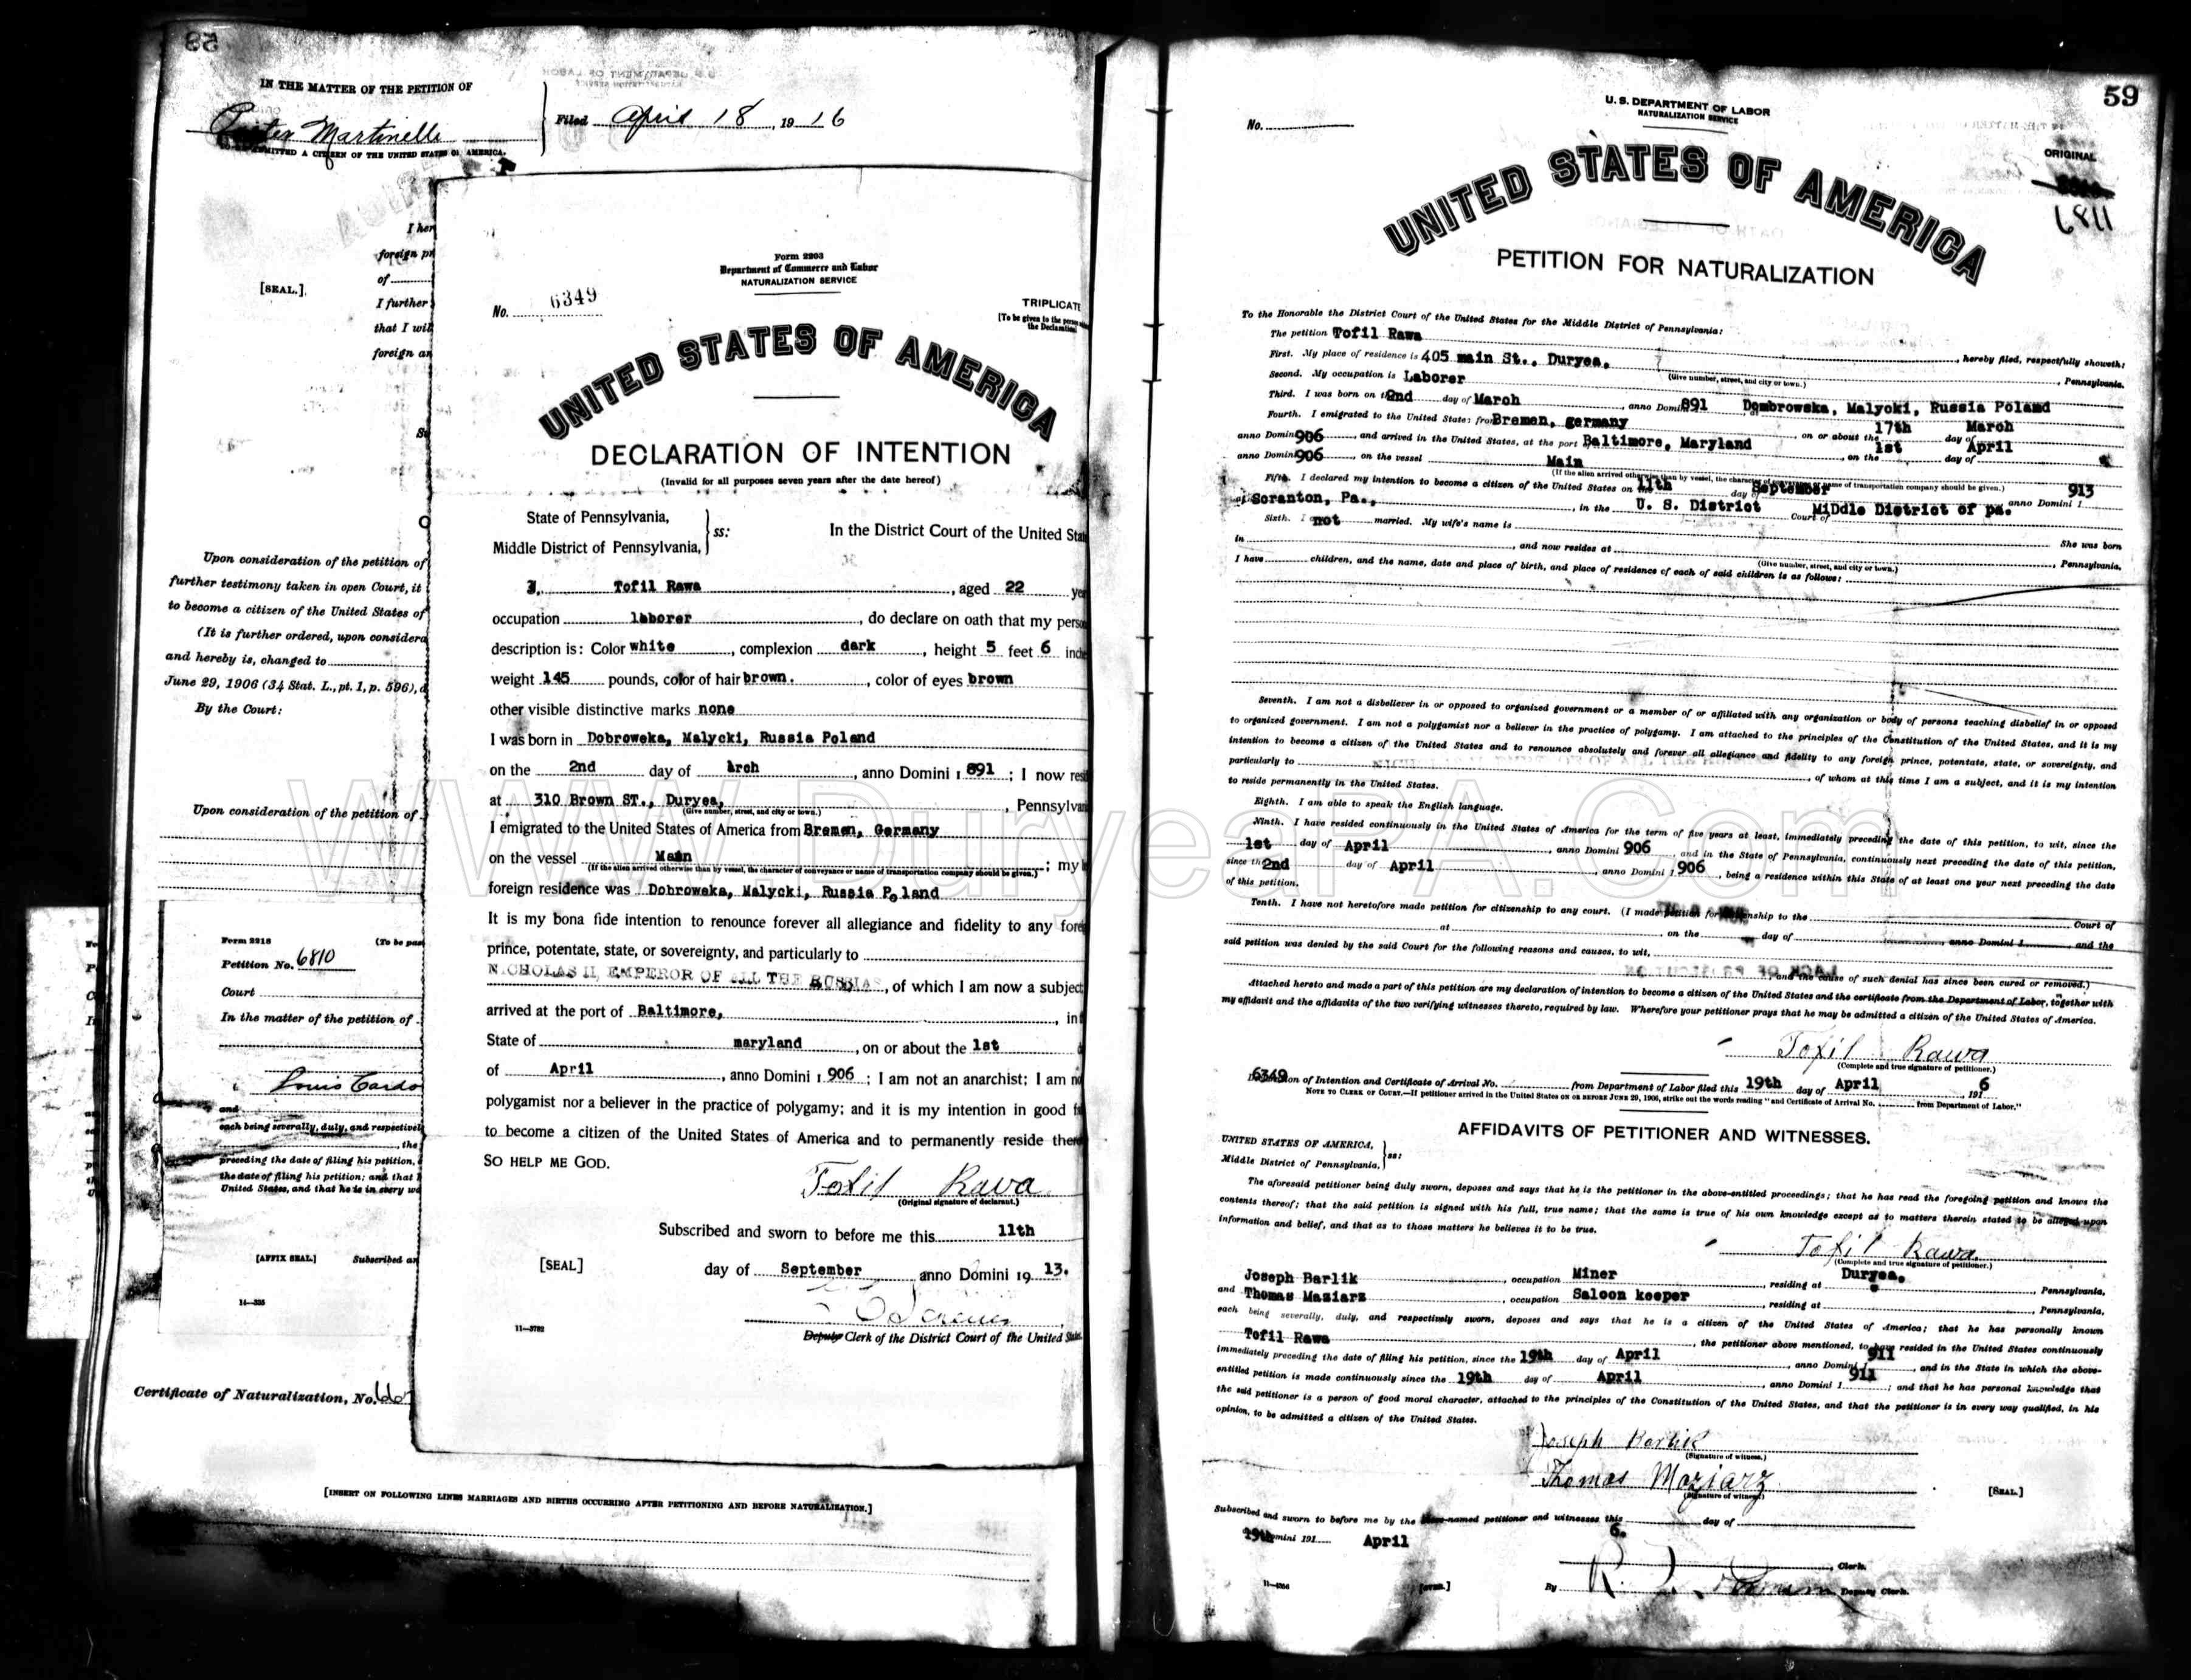 58
IN THE MATTER OF THE PETITION OF
Martinelli
ADMITTED A CITIZEN OF THE UNITED STATES OF AMERICA.
Filed April 18, 1916
I her
foreign pr
of
[SEAL.]
I further
that I will
foreign an
Upon consideration of the petition of
further testimony taken in open Court, it
to become a citizen of the United States of
(It is further ordered, upon considera
and hereby is, changed to
June 29, 1906 (34 Stat. L., pt. 1, p. 596), d
By the Court:
Upon consideration of the petition of
Form 2218 (To be
Petition No. 6810
Court
In the matter of the petition of
Louis Cardo
and
each being severally, duly, and respectivel
, the
preceding the date of filing his petition,
the date of filing his petition; and that
United States, and that he is in every wa
[AFFIX SEAL.] Subscribed an
14—335
Certificate of Naturalization, No.
[INSERT ON FOLLOWING LINES MARRIAGES AND BIRTHS OCCURRING AFTER PETITIONING AND BEFORE NATURALIZATION.]
Form 2203
Department of Commerce and Labor
NATURALIZATION SERVICE
No. 6349
TRIPLICATE
[To be given to the person
the Declaration
UNITED STATES OF AMERICA
DECLARATION OF INTENTION
(Invalid for all purposes seven years after the date hereof)
State of Pennsylvania,
Middle District of Pennsylvania,
ss:
In the District Court of the United Stat
I, Tofil Rawa, aged 22 yea
occupation laborer, do declare on oath that my perso
description is: Color white, complexion dark, height 5 feet 6 inche
weight 145 pounds, color of hair brown., color of eyes brown
other visible distinctive marks none
I was born in Dobroweka, Malycki, Russia Poland
on the 2nd day of arch, anno Domini 1 891; I now resi
at 310 Brown ST., Duryea, , Pennsylvan
(Give number, street, and city or town.)
I emigrated to the United States of America from Bremen, Germany
on the vessel Main; my l
(If the alien arrived otherwise than by vessel, the character of conveyance or name of transportation company should be given.)
foreign residence was Dobroweka, Malycki, Russia Poland
It is my bona fide intention to renounce forever all allegiance and fidelity to any forei
prince, potentate, state, or sovereignty, and particularly to
NICHOLAS II, EMPEROR OF ALL THE RUSSIAS, of which I am now a subject
arrived at the port of Baltimore, , in t
State of maryland, on or about the 1st d
of April, anno Domini 1 906; I am not an anarchist; I am no
polygamist nor a believer in the practice of polygamy; and it is my intention in good f
to become a citizen of the United States of America and to permanently reside there
SO HELP ME GOD.
Tofil Rawa
(Original signature of declarant.)
Subscribed and sworn to before me this 11th
[SEAL] day of September anno Domini 19 13.
11—3782
Deputy Clerk of the District Court of the United States.
WWW.DuryeaPA.Com
59
No.
U. S. DEPARTMENT OF LABOR
NATURALIZATION SERVICE
ORIGINAL
6811
UNITED STATES OF AMERICA
PETITION FOR NATURALIZATION
To the Honorable the District Court of the United States for the Middle District of Pennsylvania:
The petition Tofil Rawa, hereby filed, respectfully showeth:
First. My place of residence is 405 main St., Duryea, , Pennsylvania.
(Give number, street, and city or town.)
Second. My occupation is Laborer
Third. I was born on the 2nd day of March, anno Domini 891 Dombrowska, Malycki, Russia Poland
Fourth. I emigrated to the United States from Bremen, germany on or about the 17th day of March
anno Domini 906, and arrived in the United States, at the port Baltimore, Maryland, on the 1st day of April
anno Domini 906, on the vessel Main
(If the alien arrived otherwise than by vessel, the character of conveyance or name of transportation company should be given.)
Fifth. I declared my intention to become a citizen of the United States on the 11th day of September anno Domini 1 913
at Scranton, Pa., , in the U. S. District Court of MiDdle District of pa.
Sixth. I am not married. My wife's name is She was born
in , and now resides at , Pennsylvania.
(Give number, street, and city or town.)
I have children, and the name, date and place of birth, and place of residence of each of said children is as follows:
Seventh. I am not a disbeliever in or opposed to organized government or a member of or affiliated with any organization or body of persons teaching disbelief in or opposed
to organized government. I am not a polygamist nor a believer in the practice of polygamy. I am attached to the principles of the Constitution of the United States, and it is my
intention to become a citizen of the United States and to renounce absolutely and forever all allegiance and fidelity to any foreign prince, potentate, state, or sovereignty, and
particularly to , of whom at this time I am a subject, and it is my intention
to reside permanently in the United States.
Eighth. I am able to speak the English language.
Ninth. I have resided continuously in the United States of America for the term of five years at least, immediately preceding the date of this petition, to wit, since the
1st day of April, anno Domini 906, and in the State of Pennsylvania, continuously next preceding the date of this petition,
since the 2nd day of April, anno Domini 1 906, being a residence within this State of at least one year next preceding the date
of this petition.
Tenth. I have not heretofore made petition for citizenship to any court. (I made petition for citizenship to the Court of
at , on the day of , anno Domini 1 , and the
said petition was denied by the said Court for the following reasons and causes, to wit,
, and the cause of such denial has since been cured or removed.)
Attached hereto and made a part of this petition are my declaration of intention to become a citizen of the United States and the certificate from the Department of Labor, together with
my affidavit and the affidavits of the two verifying witnesses thereto, required by law. Wherefore your petitioner prays that he may be admitted a citizen of the United States of America.
Tofil Rawa
(Complete and true signature of petitioner.)
Declaration of Intention and Certificate of Arrival No. 6349 from Department of Labor filed this 19th day of April, 191 6
NOTE TO CLERK OF COURT.—If petitioner arrived in the United States ON OR BEFORE JUNE 29, 1906, strike out the words reading "and Certificate of Arrival No. from Department of Labor."
AFFIDAVITS OF PETITIONER AND WITNESSES.
UNITED STATES OF AMERICA,
Middle District of Pennsylvania,
ss:
The aforesaid petitioner being duly sworn, deposes and says that he is the petitioner in the above-entitled proceedings; that he has read the foregoing petition and knows the
contents thereof; that the said petition is signed with his full, true name; that the same is true of his own knowledge except as to matters therein stated to be alleged upon
information and belief, and that as to those matters he believes it to be true.
Tofil Rawa
(Complete and true signature of petitioner.)
Joseph Barlik, occupation Miner, residing at Duryea., Pennsylvania,
and Thomas Maziarz, occupation Saloon keeper, residing at , Pennsylvania,
each being severally, duly, and respectively sworn, deposes and says that he is a citizen of the United States of America; that he has personally known
Tofil Rawa, the petitioner above mentioned, to have resided in the United States continuously
immediately preceding the date of filing his petition, since the 19th day of April, anno Domini 1 911, and in the State in which the above-
entitled petition is made continuously since the 19th day of April, anno Domini 1 911; and that he has personal knowledge that
the said petitioner is a person of good moral character, attached to the principles of the Constitution of the United States, and that the petitioner is in every way qualified, in his
opinion, to be admitted a citizen of the United States.
Joseph Barlik
(Signature of witness.)
Thomas Maziarz
(Signature of witness.)
[SEAL.]
Subscribed and sworn to before me by the above-named petitioner and witnesses this day of
19th Domini 191 April 6.
, Clerk.
By , Deputy Clerk.